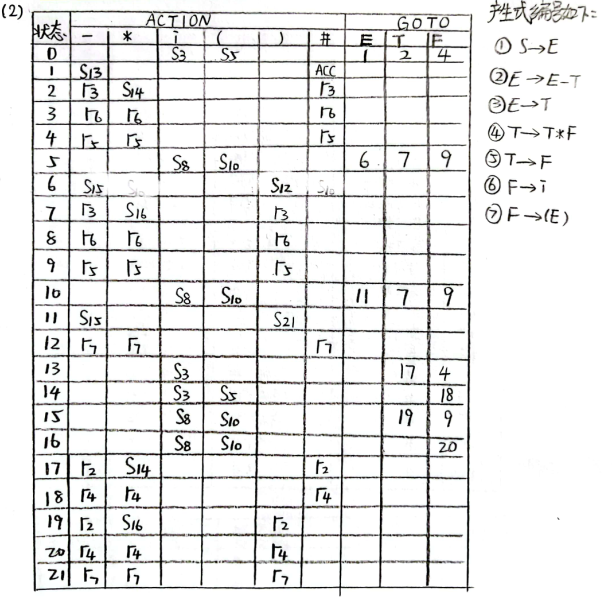 (2)
ACTION GOTO
状态 - * i ( ) # E T F
0 S3 S5 1 2 4
1 S13 ACC
2 r3 S14 r3
3 r6 r6 r6
4 r5 r5 r5
5 S8 S10 6 7 9
6 S15 S12
7 r3 S16 r3
8 r6 r6 r6
9 r5 r5 r5
10 S8 S10 11 7 9
11 S15 S21
12 r7 r7 r7
13 S3 17 4
14 S3 S5 18
15 S8 S10 19 9
16 S8 S10 20
17 r2 S14 r2
18 r4 r4 r4
19 r2 S16 r2
20 r4 r4 r4
21 r7 r7 r7
产生式编号如下:
① S→E
② E→E-T
③ E→T
④ T→T*F
⑤ T→F
⑥ F→i
⑦ F→(E)